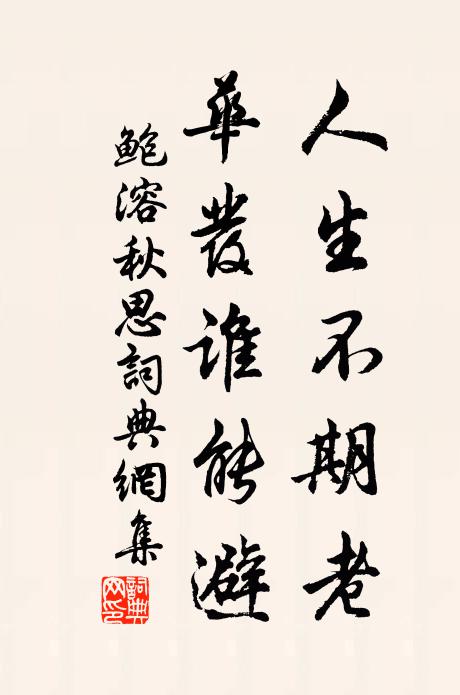 人生不期老
華發誰能避
鮑溶秋思詞典網集
詞典網印